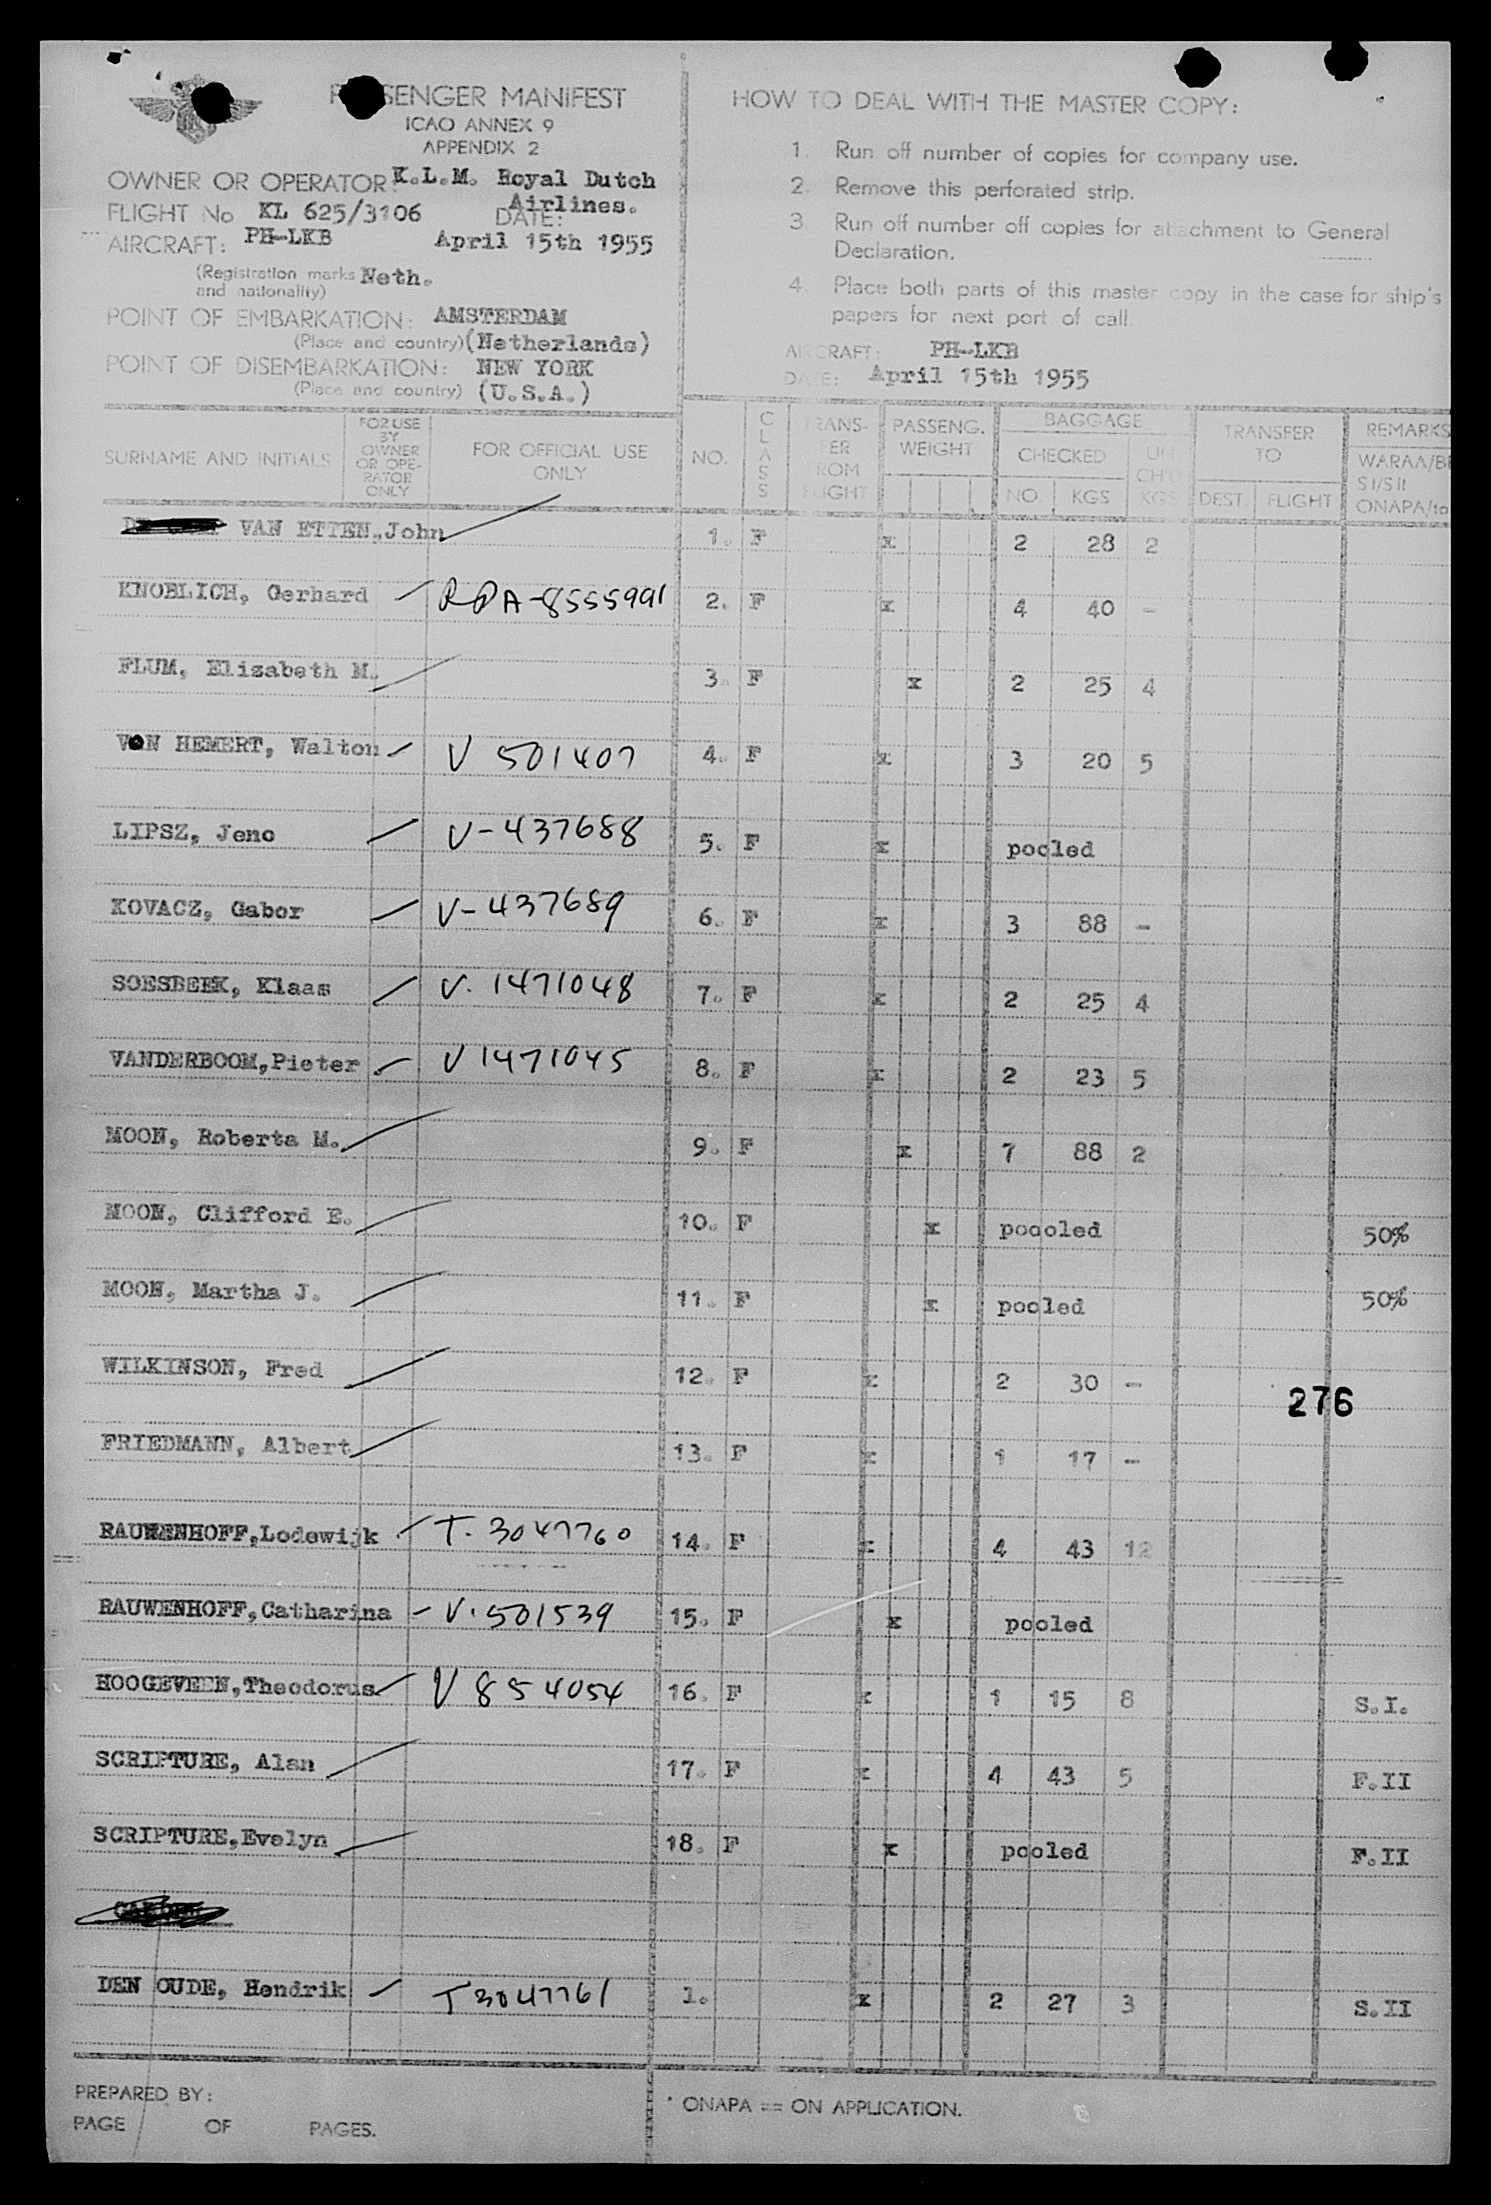 PASSENGER MANIFEST
ICAO ANNEX 9
APPENDIX 2
OWNER OR OPERATOR: K.L.M. Royal Dutch Airlines.
FLIGHT No KL 625/3106 DATE:
AIRCRAFT: PH-LKB April 15th 1955
(Registration marks and nationality) Neth.
POINT OF EMBARKATION: AMSTERDAM
(Place and country) (Netherlands)
POINT OF DISEMBARKATION: NEW YORK
(Place and country) (U.S.A.)
HOW TO DEAL WITH THE MASTER COPY:
1. Run off number of copies for company use.
2. Remove this perforated strip.
3. Run off number off copies for attachment to General
Declaration.
4. Place both parts of this master copy in the case for ship's
papers for next port of call.
AIRCRAFT: PH-LKB
DATE: April 15th 1955
SURNAME AND INITIALS
FOR USE BY OWNER OR OPE-RATOR ONLY
FOR OFFICIAL USE ONLY
NO.
CLASS
TRANS-FER FROM FLIGHT
PASSENG. WEIGHT
BAGGAGE
CHECKED
NO KGS
UN CH'D KGS
TRANSFER TO
DEST. FLIGHT
REMARKS
WARAA/B
S I/S II
ONAPA/to
VAN ETTEN, John 1. F x 2 28 2
KNOBLICH, Gerhard RPA-8555991 2. F x 4 40 -
FLUM, Elizabeth M. 3. F x 2 25 4
VAN HEMERT, Walton V 501407 4. F x 3 20 5
LIPSZ, Jeno V-437688 5. F x pooled
KOVACZ, Gabor V-437689 6. F x 3 88 -
SOESBEEK, Klaas V. 1471048 7. F x 2 25 4
VANDERBOOM,Pieter V 1471045 8. F x 2 23 5
MOON, Roberta M. 9. F x 7 88 2
MOON, Clifford E. 10. F x poooled 50%
MOON, Martha J. 11. F x pooled 50%
WILKINSON, Fred 12. F x 2 30 -
276
FRIEDMANN, Albert 13. F x 1 17 -
RAUWENHOFF,Lodewijk T. 3047760 14. F x 4 43 12
RAUWENHOFF,Catharina V. 501539 15. F x pooled
HOOGEVEEN,Theodorus V 854054 16. F x 1 15 8 S.I.
SCRIPTURE, Alan 17. F x 4 43 5 F.II
SCRIPTURE,Evelyn 18. F x pooled F.II
DEN OUDE, Hendrik T3047761 1. x 2 27 3 S.II
PREPARED BY:
PAGE OF PAGES.
* ONAPA == ON APPLICATION.